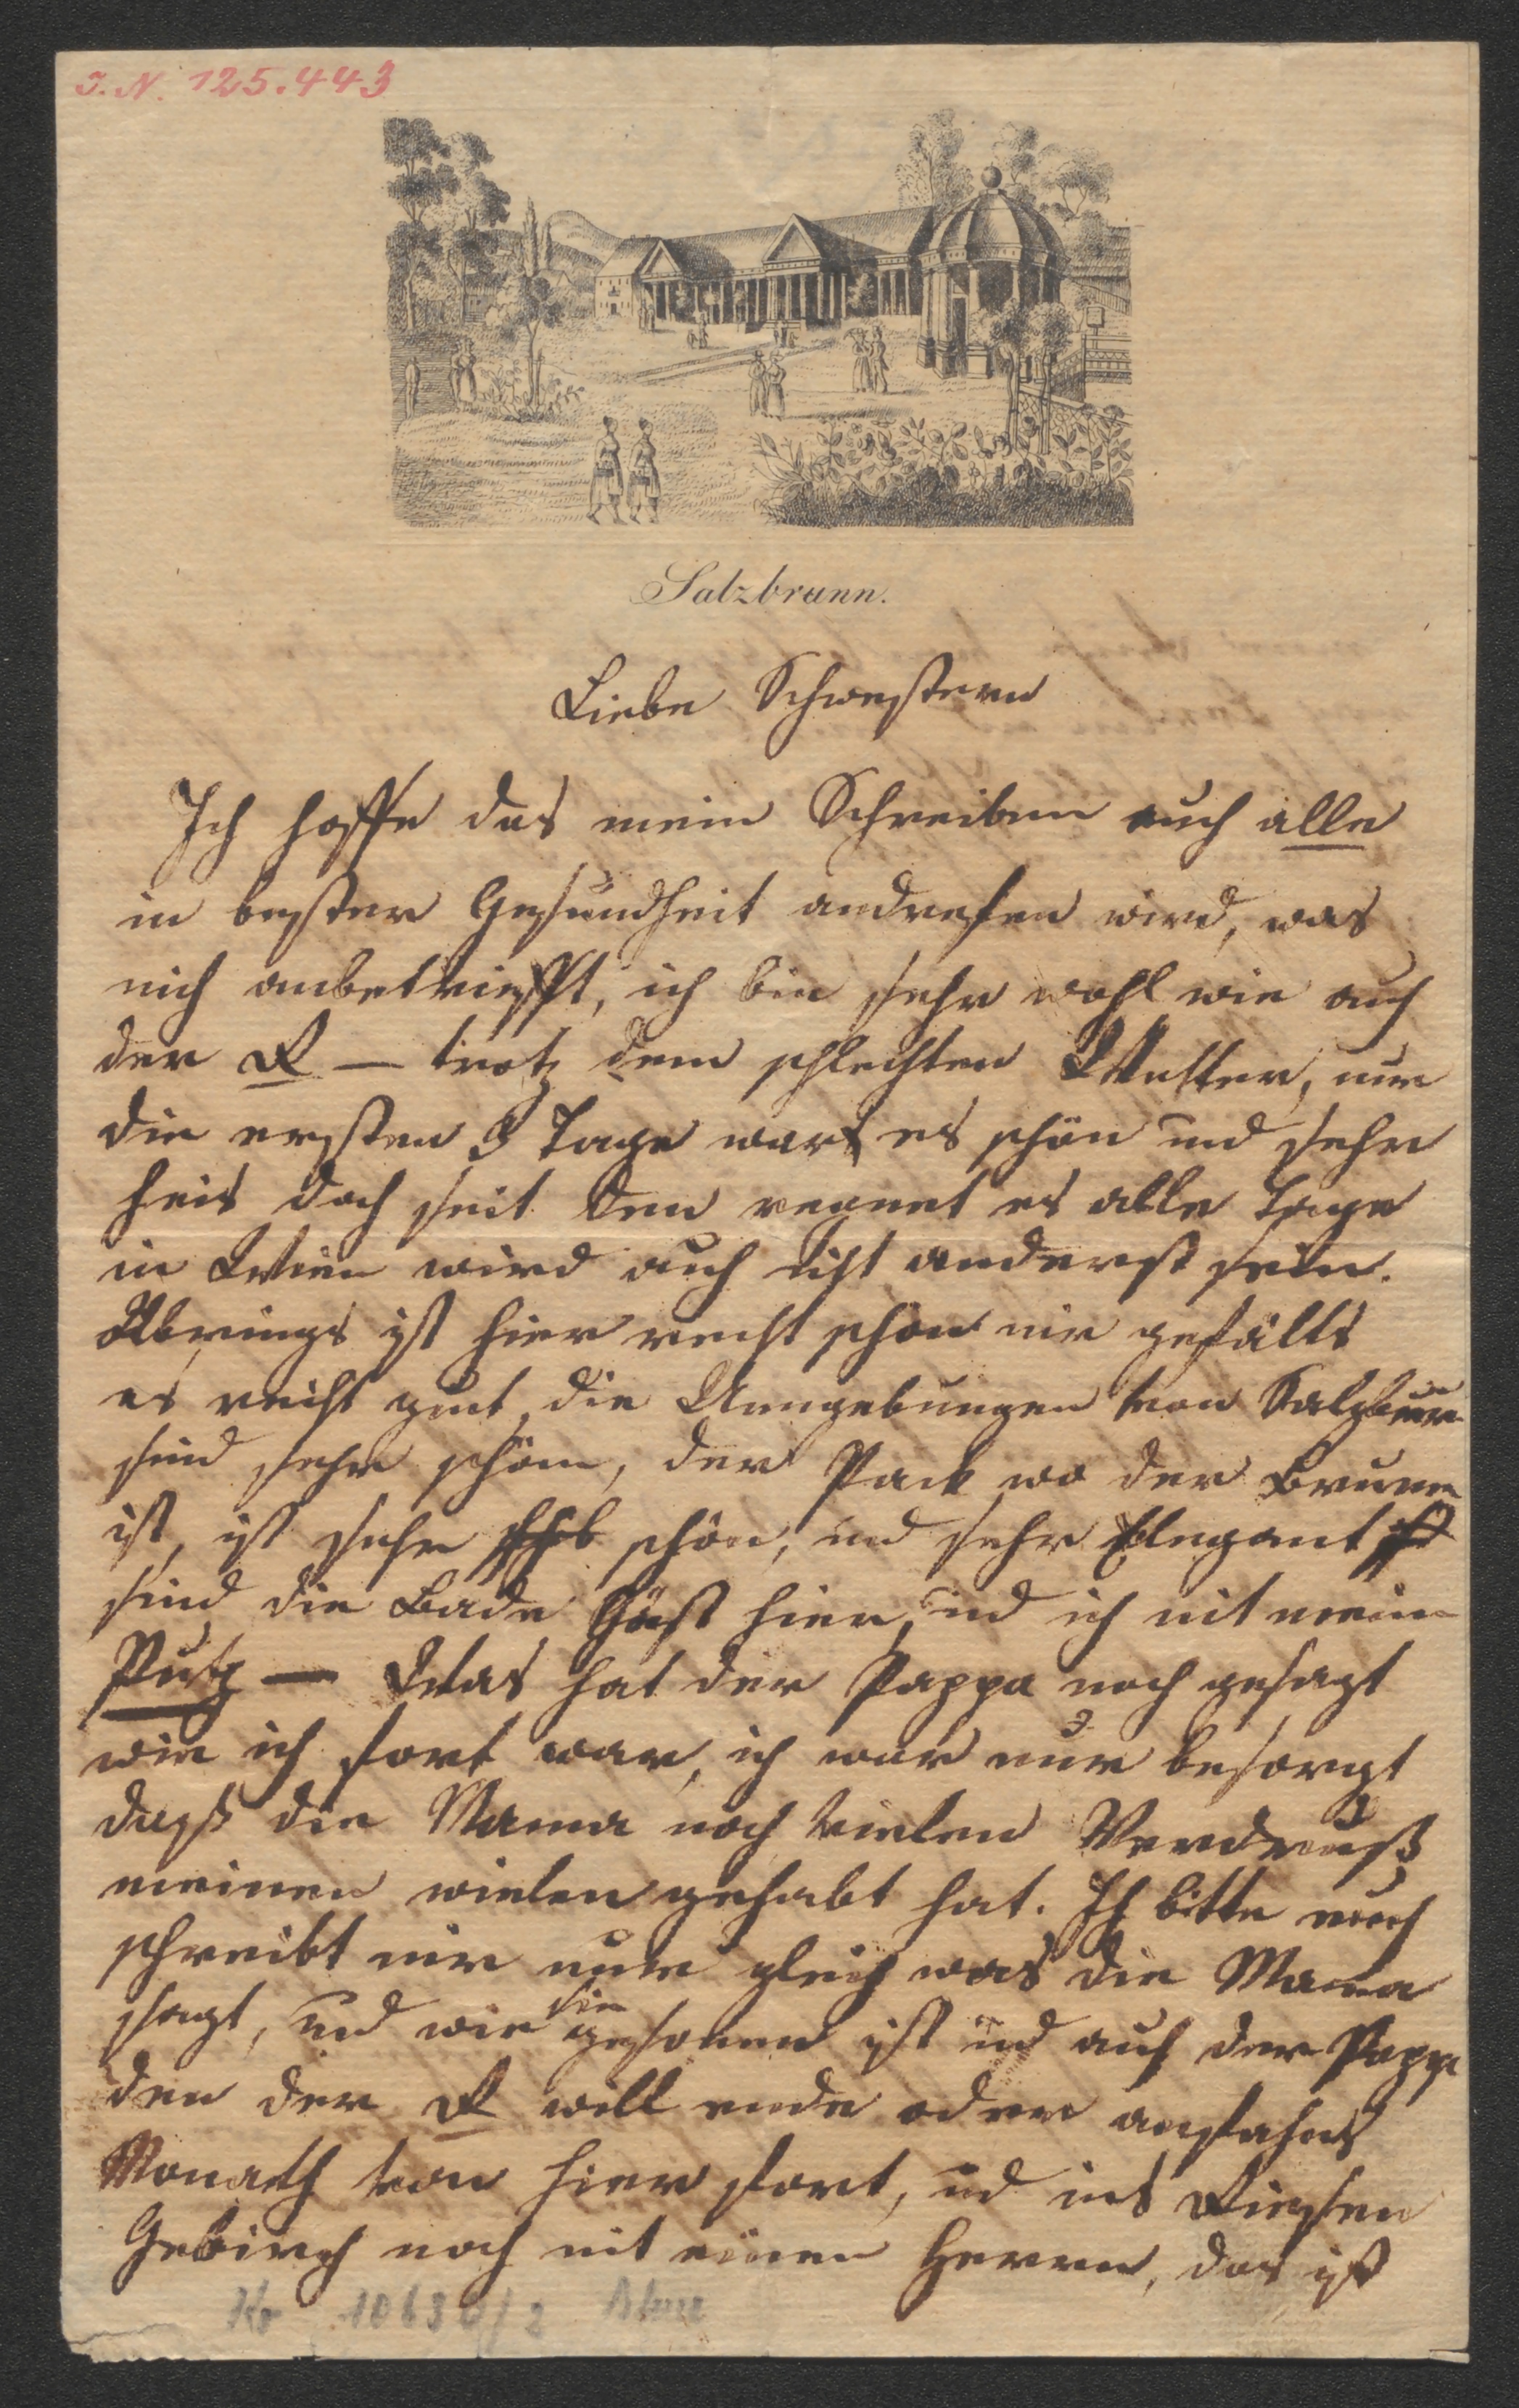 I. N. 125.443
Salzbrunn.
Liebe Schwestern
Ich hoffe das mein Schreiben euch alle
in bester Gesundheit andrefen wird, was
mich anbetriefft, ich bin sehr wohl wie auch
der R — trotz dem schlechten Wetter, nur
die ersten 3 Tage war es schön und sehr
heis doch seit den regnet es alle Tage
in Wien wird auch nicht anderst sein.
Übrings ist hier recht schön mir gefällts
es recht gut, die Umgebungen von Salzbrunn
sind sehr schön, der Park wo der Brunn
ist, ist sehr schön, und sehr Elegant
sind die Bade Gäst hier, und ich mit mein
Putz — Was hat der Pappa noch gesagt
wie ich fort war, ich war nur besorgt
daß die Mama noch vielen Verdruß
meinen wielen gehabt hat. Ich bitte euch
schreibt mir nur gleich was die Mama
sagt, und wie sie gesonen ist und auch der Pappa
den der R will ende oder anfahns
Monath von hier fort, und ins Riesen
Gebirg noch mit einen Herrn, das ist
10630/2